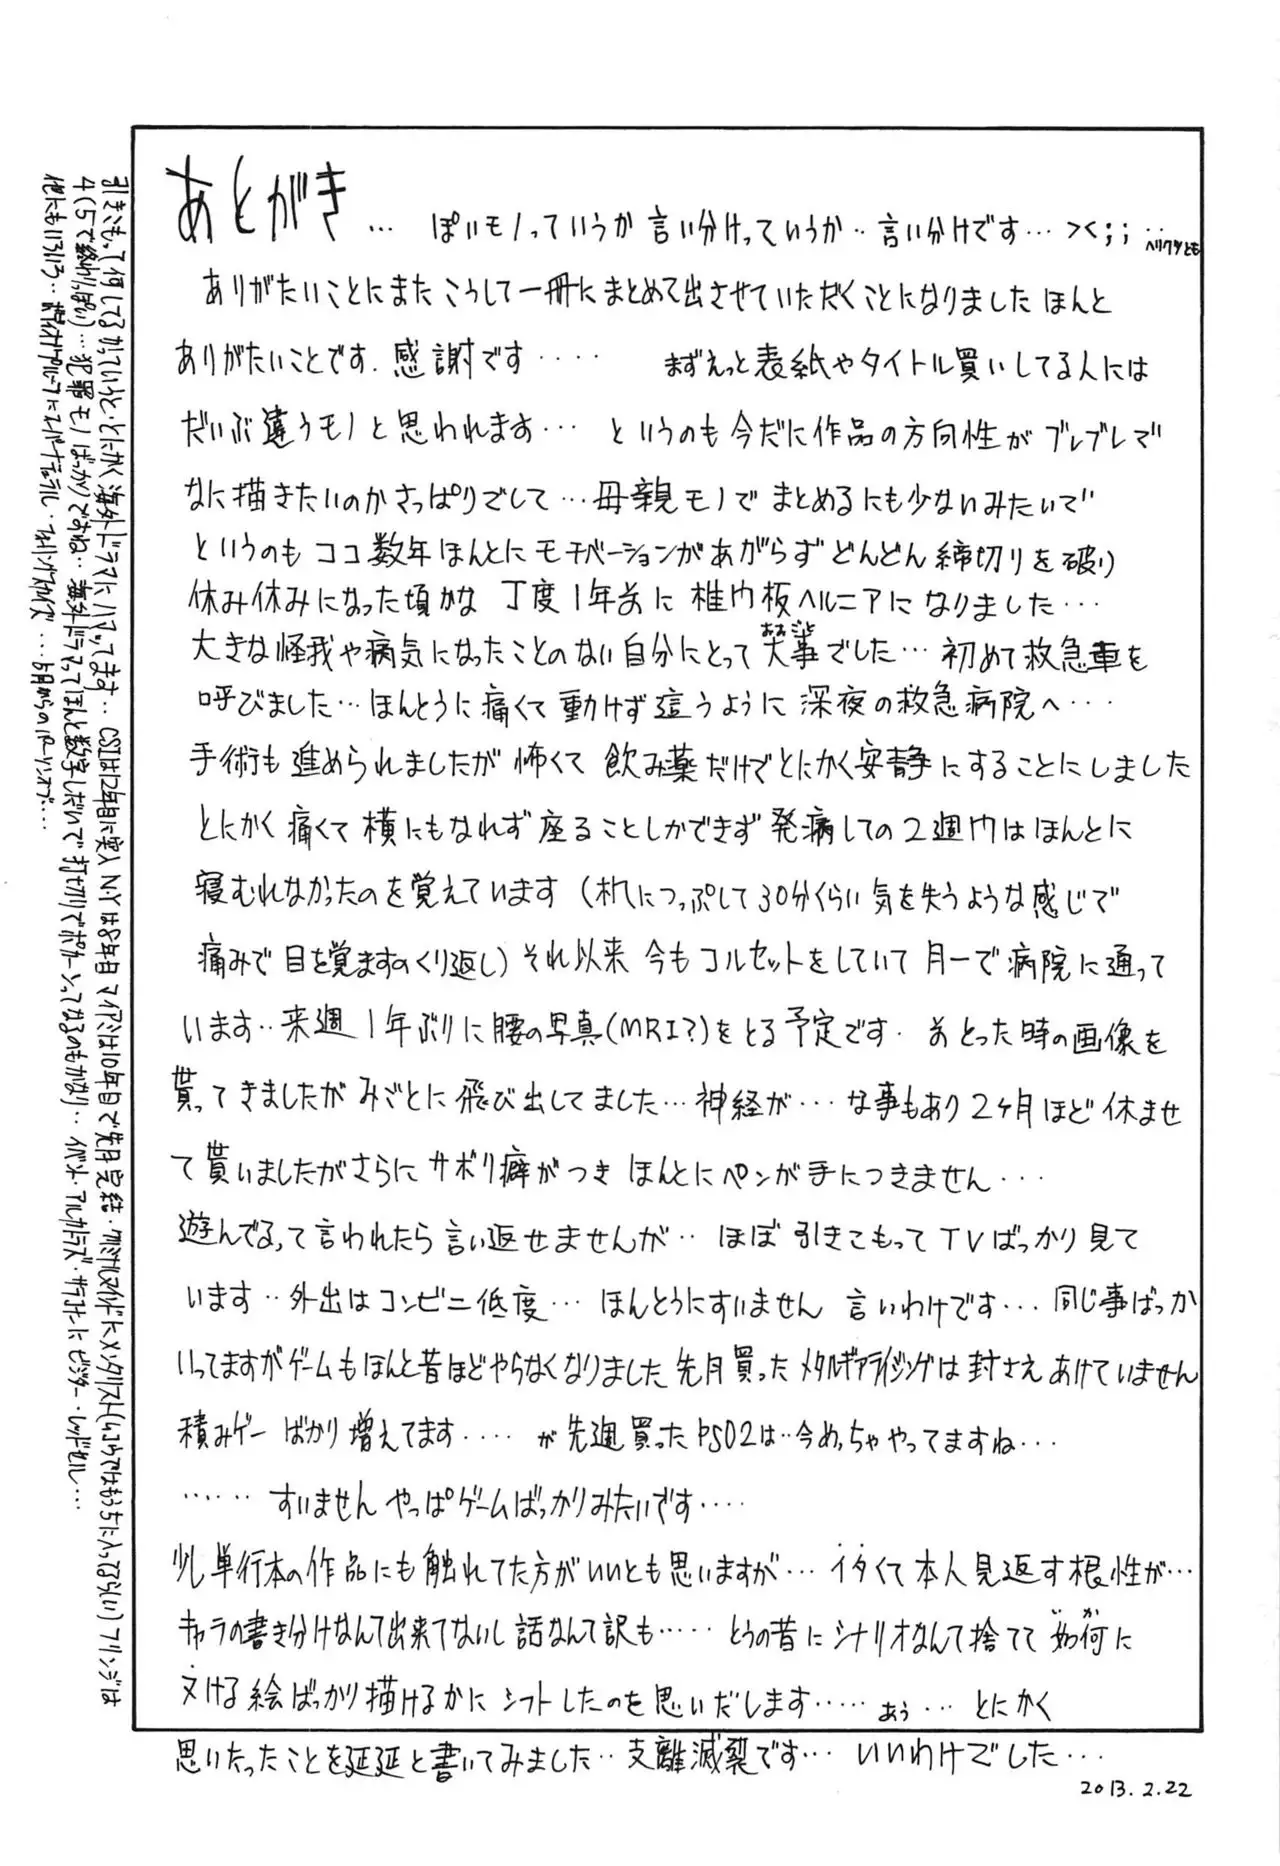 あとがき… ぽいモノっていうか言い分けっていうか‥言い分けです… ><;;‥ ヘリクツとも
ありがたいことにまたこうして一冊にまとめて出させていただくことになりましたほんと
ありがたいことです.感謝です‥‥ まずえっと表紙やタイトル買いしてる人には
だいぶ違うモノと思われます… というのも今だに作品の方向性がブレブレで
なに描きたいのかさっぱりでして…母親モノでまとめるにも少ないみたいで
というのもココ数年ほんとにモチベーションがあがらずどんどん締切りを破り
休み休みになった頃かな 丁度1年前に椎間板ヘルニアになりました…
大きな怪我や病気になったことのない自分にとって大事でした…初めて救急車を
おおごと
呼びました…ほんとうに痛くて動けず這うように深夜の救急病院へ…
手術も進められましたが怖くて飲み薬だけでとにかく安静にすることにしました
とにかく痛くて横にもなれず座ることしかできず発病しての2週間はほんとに
寝むれなかったのを覚えています(机につっぷして30分くらい気を失うような感じで
痛みで目を覚ますのくり返し)それ以来今もコルセットをしていて月一で病院に通って
います‥来週1年ぶりに腰の写真(MRI?)をとる予定です.前とった時の画像を
貰ってきましたがみごとに飛び出してました…神経が…な事もあり2ヶ月ほど休ませ
て貰いましたがさらにサボリ癖がつきほんとにペンが手につきません…
遊んでるって言われたら言い返せませんが‥ほぼ引きこもってTVばっかり見て
います‥外出はコンビニ低度…ほんとうにすいません言いわけです…同じ事ばっか
いってますがゲームもほんと昔ほどやらなくなりました先月買ったメタルギアライジングは封さえあけていません
積みゲーばかり増えてます‥‥が先週買ったPSO2は‥今めっちゃやってますね…
‥‥‥すいませんやっぱゲームばっかりみたいです‥‥
少し単行本の作品にも触れてた方がいいとも思いますが…イタくて本人見返す根性が…
キャラの書き分けなんて出来てないし話なんて訳も‥‥‥とうの昔にシナリオなんて捨てて如何に
いか
ヌける絵ばっかり描けるかにシフトしたのを思いだします‥‥‥ぁぅ…とにかく
思いたったことを延延と書いてみました‥支離滅裂です…いいわけでした…
2013.2.22
引きこもって何してるかっていうと・とにかく海外ドラマにハマってます‥ CSIは12年目に突入 N.Yは8年目 マイアミは10年目で先月完結・クリミナルマインドにメンタリスト(ムコウではもう5に入ってるらしい)フリンジは
4(5で終わりっぽい)…犯罪モノばっかりですね‥海外ドラマってほんと数字しだいで打ち切りでポカーンってなるのもかなり‥イベント・アルカトラズ・ザ・イベントにビジター・レッドセル…
他にもいろいろ‥ スーパーナチュラル・フォーリングスカイズ…5月からのパーソンオブ…